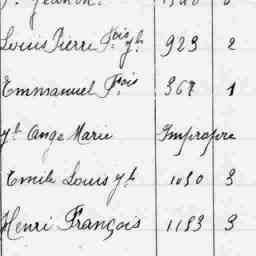 Louis Pierre Fois yh 923 2
Emmanuel Fois 367 1
yh Ange Marie Impropre
Emile Louis yh 1050 3
Henri François 1153 3